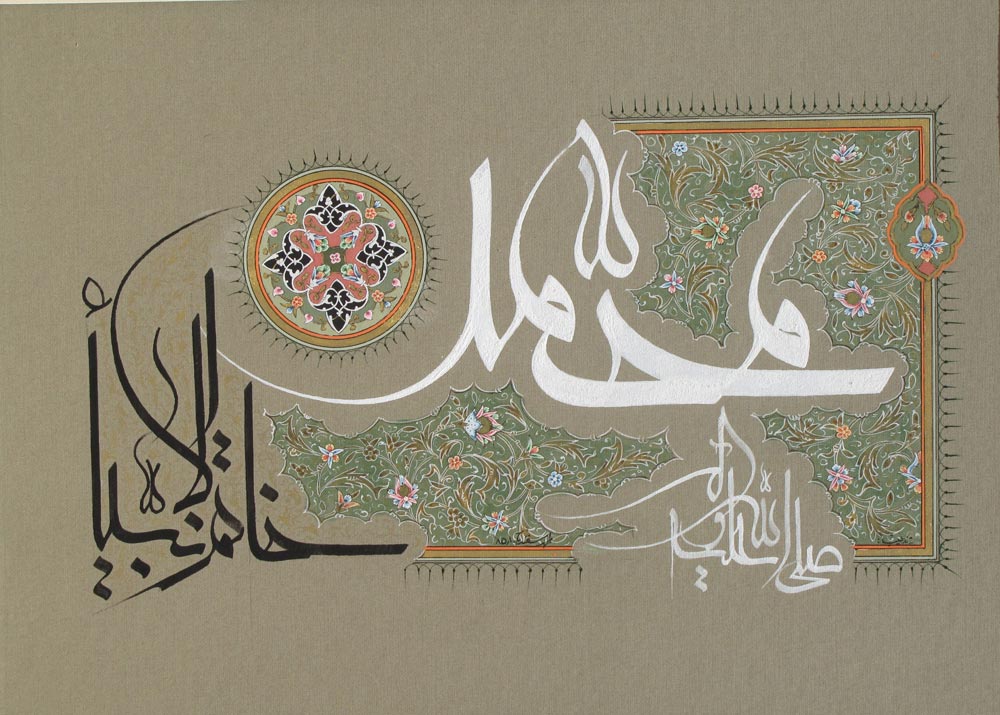 محمّد
صلی الله علیه و اله
خاتم الانبیأ